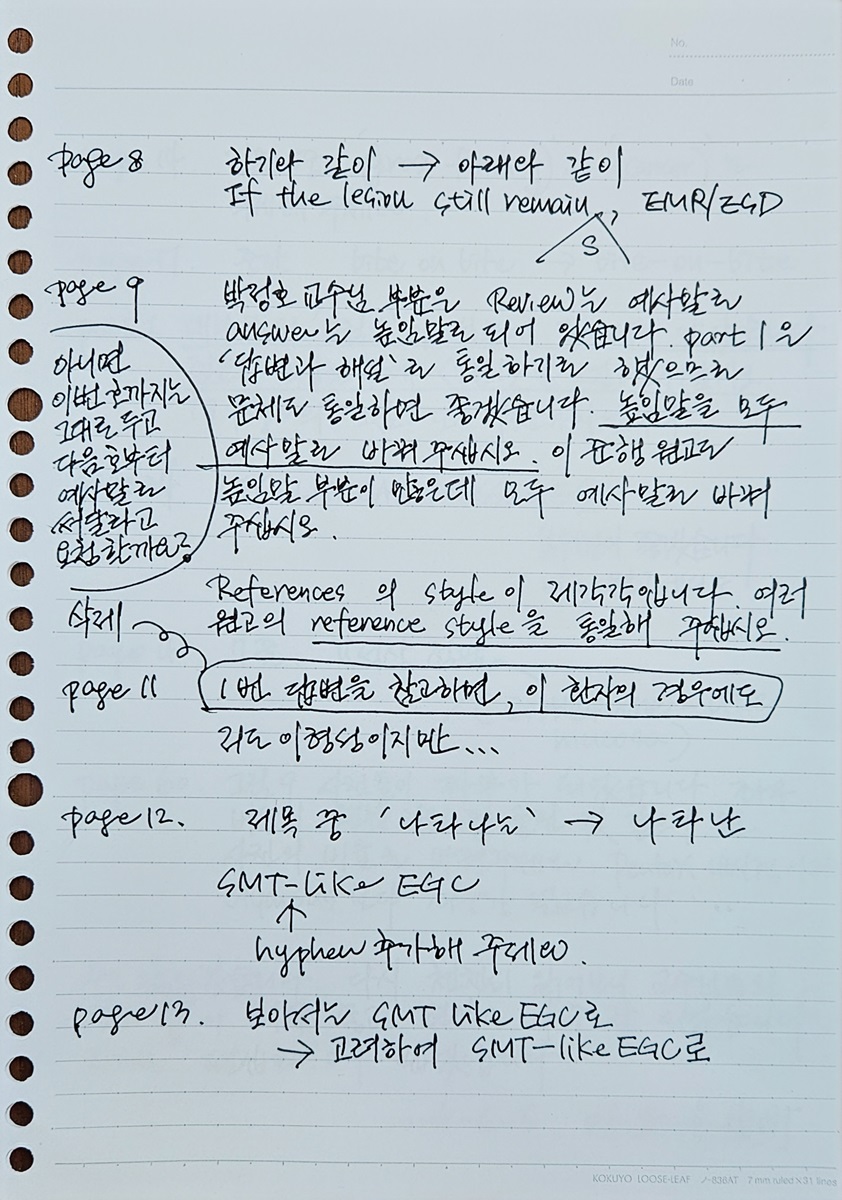 No.
Date
page 8 하기와 같이 → 아래와 같이
If the lesion still remain, EMR/ESD
S
page 9 박정호 교수님 부분은 Review는 예사말로
answer는 높임말로 되어 있습니다. part 1은
'답변과 해설'로 통일하기로 했으므로
문체도 통일하면 좋겠습니다. 높임말을 모두
예사말로 바꿔 주십시오. 이 준행 원고도
높임말 부분이 많은데 모두 예사말로 바꿔
주십시오.
아니면
이번 호까지는
그대로 두고
다음 호부터
예사말로
써달라고
요청할까요?
References 의 style이 제각각입니다. 여러
원고의 reference style을 통일해 주십시오.
삭제
page 11 1번 답변을 참고하면, 이 환자의 경우에도
리도 이형성이지만...
page 12. 제목 중 '나타나는' → 나타난
SMT-like EGC
↑
hyphen 추가해 주세요.
page 13. 보아서는 SMT like EGC로
→ 고려하여 SMT-like EGC로
KOKUYO LOOSE-LEAF ノ-836AT 7 mm ruled×31 lines